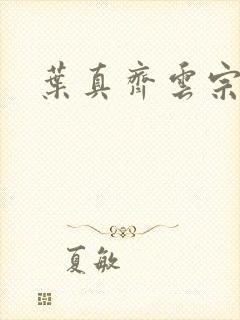 葉真齊雲宗
夏敏